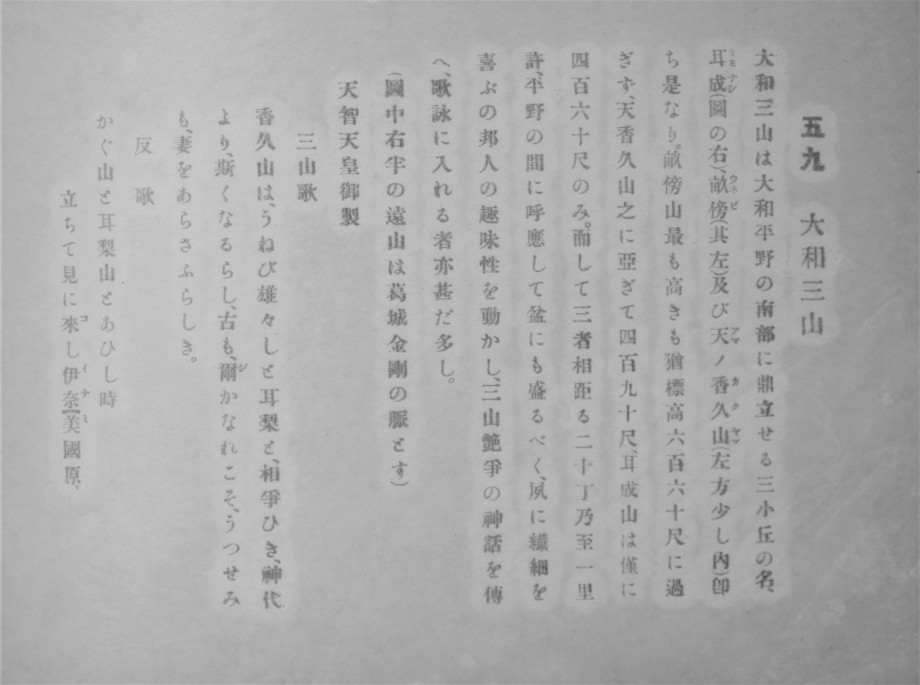 五九　大和三山
大和三山は大和平野の南部に鼎立せる三小丘の名、
耳成(圖の右)、畝傍(其左)及び天ノ香久山(左方少し內)卽
ち是なり。畝傍山最も高きも猶標高六百六十尺に過
ぎず、天香久山之に亞ぎて四百九十尺、耳成山は僅に
四百六十尺のみ。而して三者相距る二十丁乃至一里
許、平野の間に呼應して盆にも盛るべく、夙に纖細を
喜ぶの邦人の趣味性を動かし、三山艶爭の神話を傳
へ、歌詠に入れる者亦甚だ多し。
(圖中右半の遠山は葛城金剛の脈とす)
天智天皇御製
三山歌
香久山は、うねび雄々しと耳梨と、相爭ひき、神代
より、斯くなるらし、古も、爾かなれこそ、うつせみ
も、妻をあらさふらしき。
反歌
かぐ山と耳梨山とあひし時
立ちて見に來し伊奈美國原。